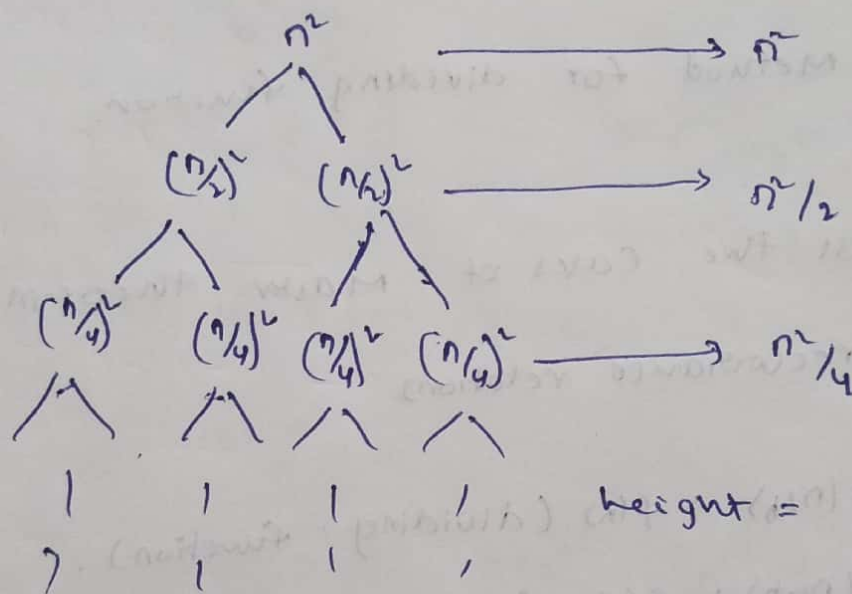 n² n²
(n/2)² (n/2)² n²/2
(n/4)² (n/4)² (n/4)² (n/4)² n²/4
height =